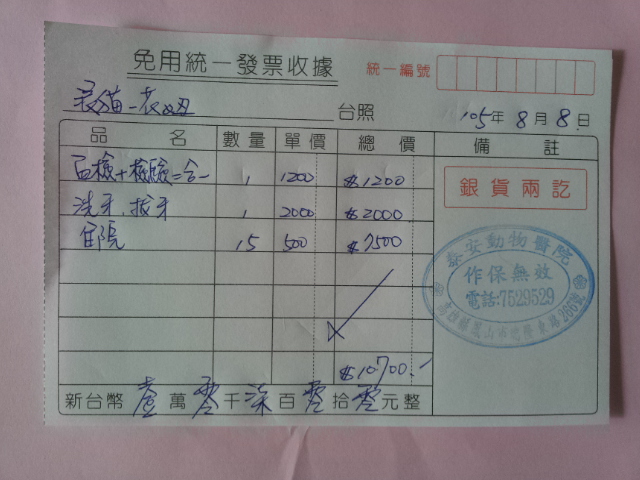 免用統一發票收據
統一編號
貓-衣妞 台照 105年8月8日
品名 數量 單價 總價 備註
血檢+檢驗=合一 1 1200 $1200
洗牙、拔牙 1 2000 $2000
住院 15 500 $7500
銀貨兩訖
泰安動物醫院
作保無效
電話:7529529
$10700.-
新台幣壹萬零千柒百零拾零元整